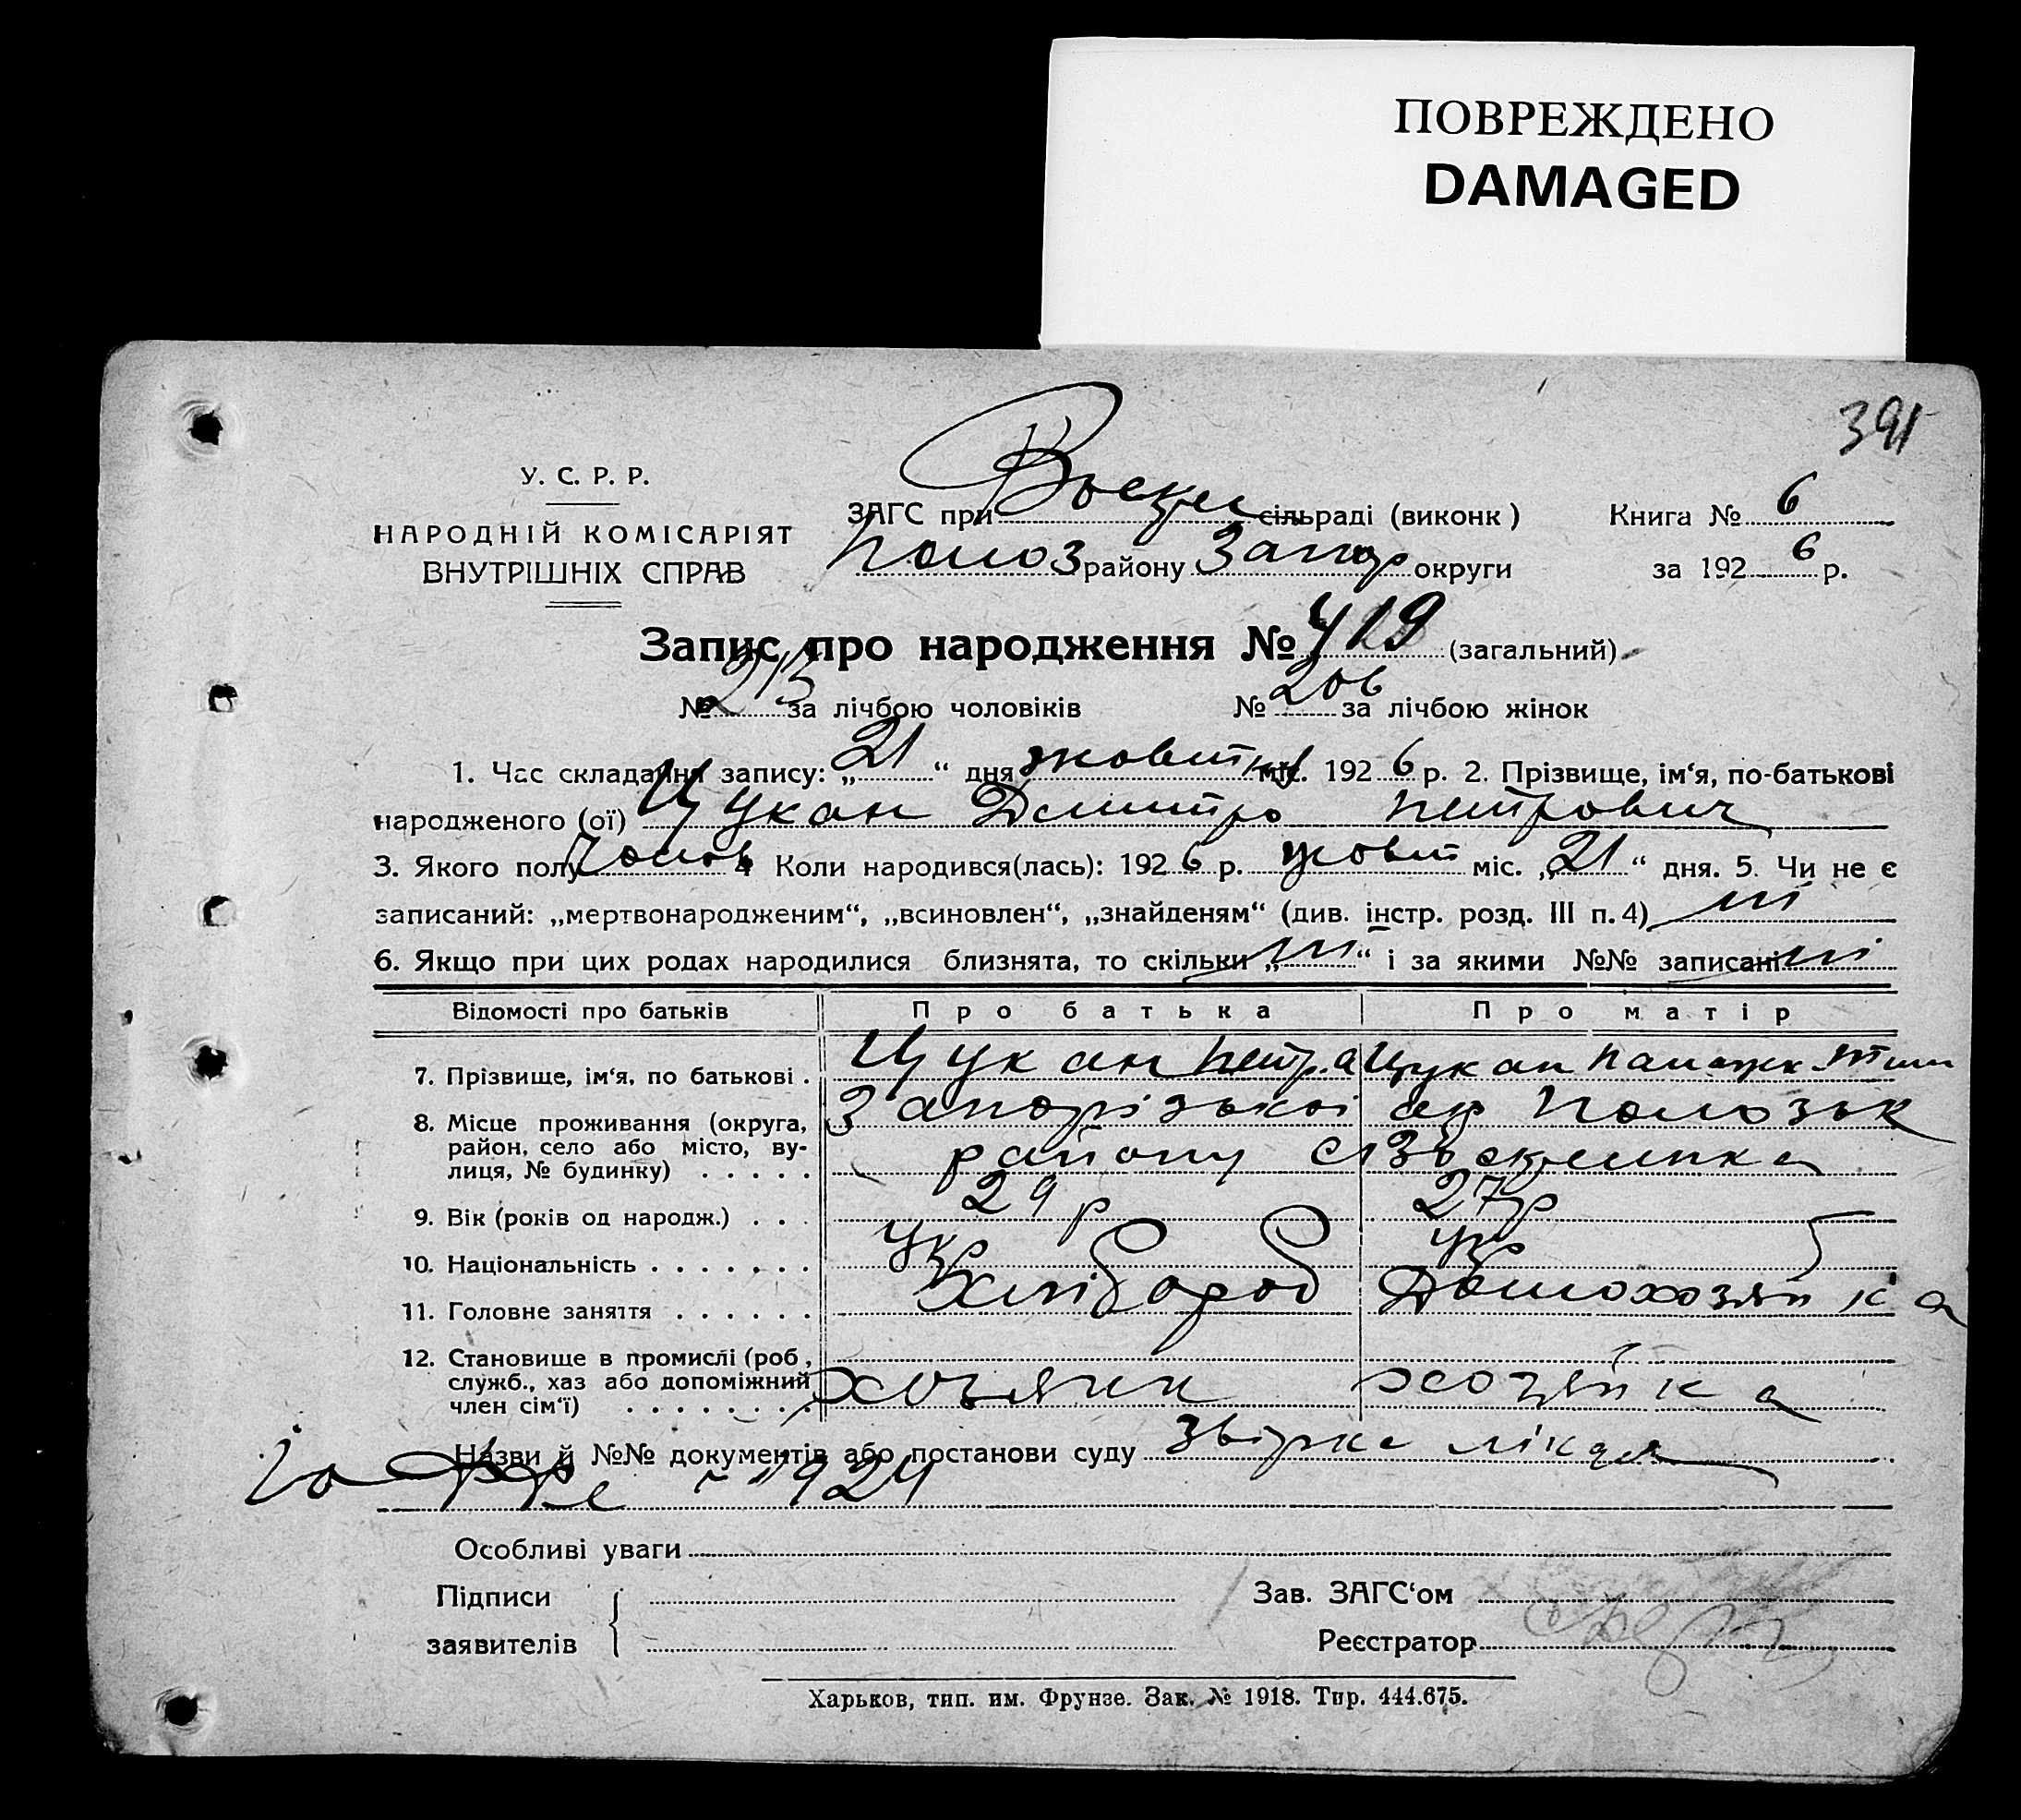 ПОВРЕЖДЕНО
DAMAGED
391
У. С. Р. Р.
НАРОДНІЙ КОМІСАРІЯТ
ВНУТРІШНІХ СПРАВ
ЗАГС при Воскр сільраді (виконк)
Полоз району Запор округи
Книга № 6
за 1926 р.
Запис про народження № 419 (загальний)
№ 213 за лічбою чоловіків № 206 за лічбою жінок
1. Час складання запису: „21“ дня жовтня міс. 1926 р. 2. Прізвище, ім‘я, по-батькові
народженого (ої) Цукан Дмитро Петрович
3. Якого полу Чолов 4 Коли народився(лась): 1926 р. жовт міс. „21“ дня. 5. Чи не є
записаний: „мертвонародженим“, „всиновлен“, „знайденям“ (див. інстр. розд. III п. 4) ні
6. Якщо при цих родах народилися близнята, то скільки „ні“ і за якими №№ записані ні
Відомості про батьків Про батька Про матір
7. Прізвище, ім‘я, по батькові . Цукан Петр. Цукан Палажк
8. Місце проживання (округа, Запорізької окр Полозьк
район, село або місто, ву-
лиця, № будинку) . . . . . району
9. Вік (років од народж.) . . . 29 р 27 р
10. Національність . . . . . . . укр укр
11. Головне заняття . . . . . . Хлібороб Домохозяйка
12. Становище в промислі (роб,
служб., хаз або допоміжний
член сім‘ї) . . . . . . . . хозяин хозяйка
Назви й №№ документів або постанови суду лікаря
1924
Особливі уваги
Підписи
заявителів
Зав. ЗАГС‘ом
Реєстратор
Харьков, тип. им. Фрунзе. Зак. № 1918. Тир. 444.675.